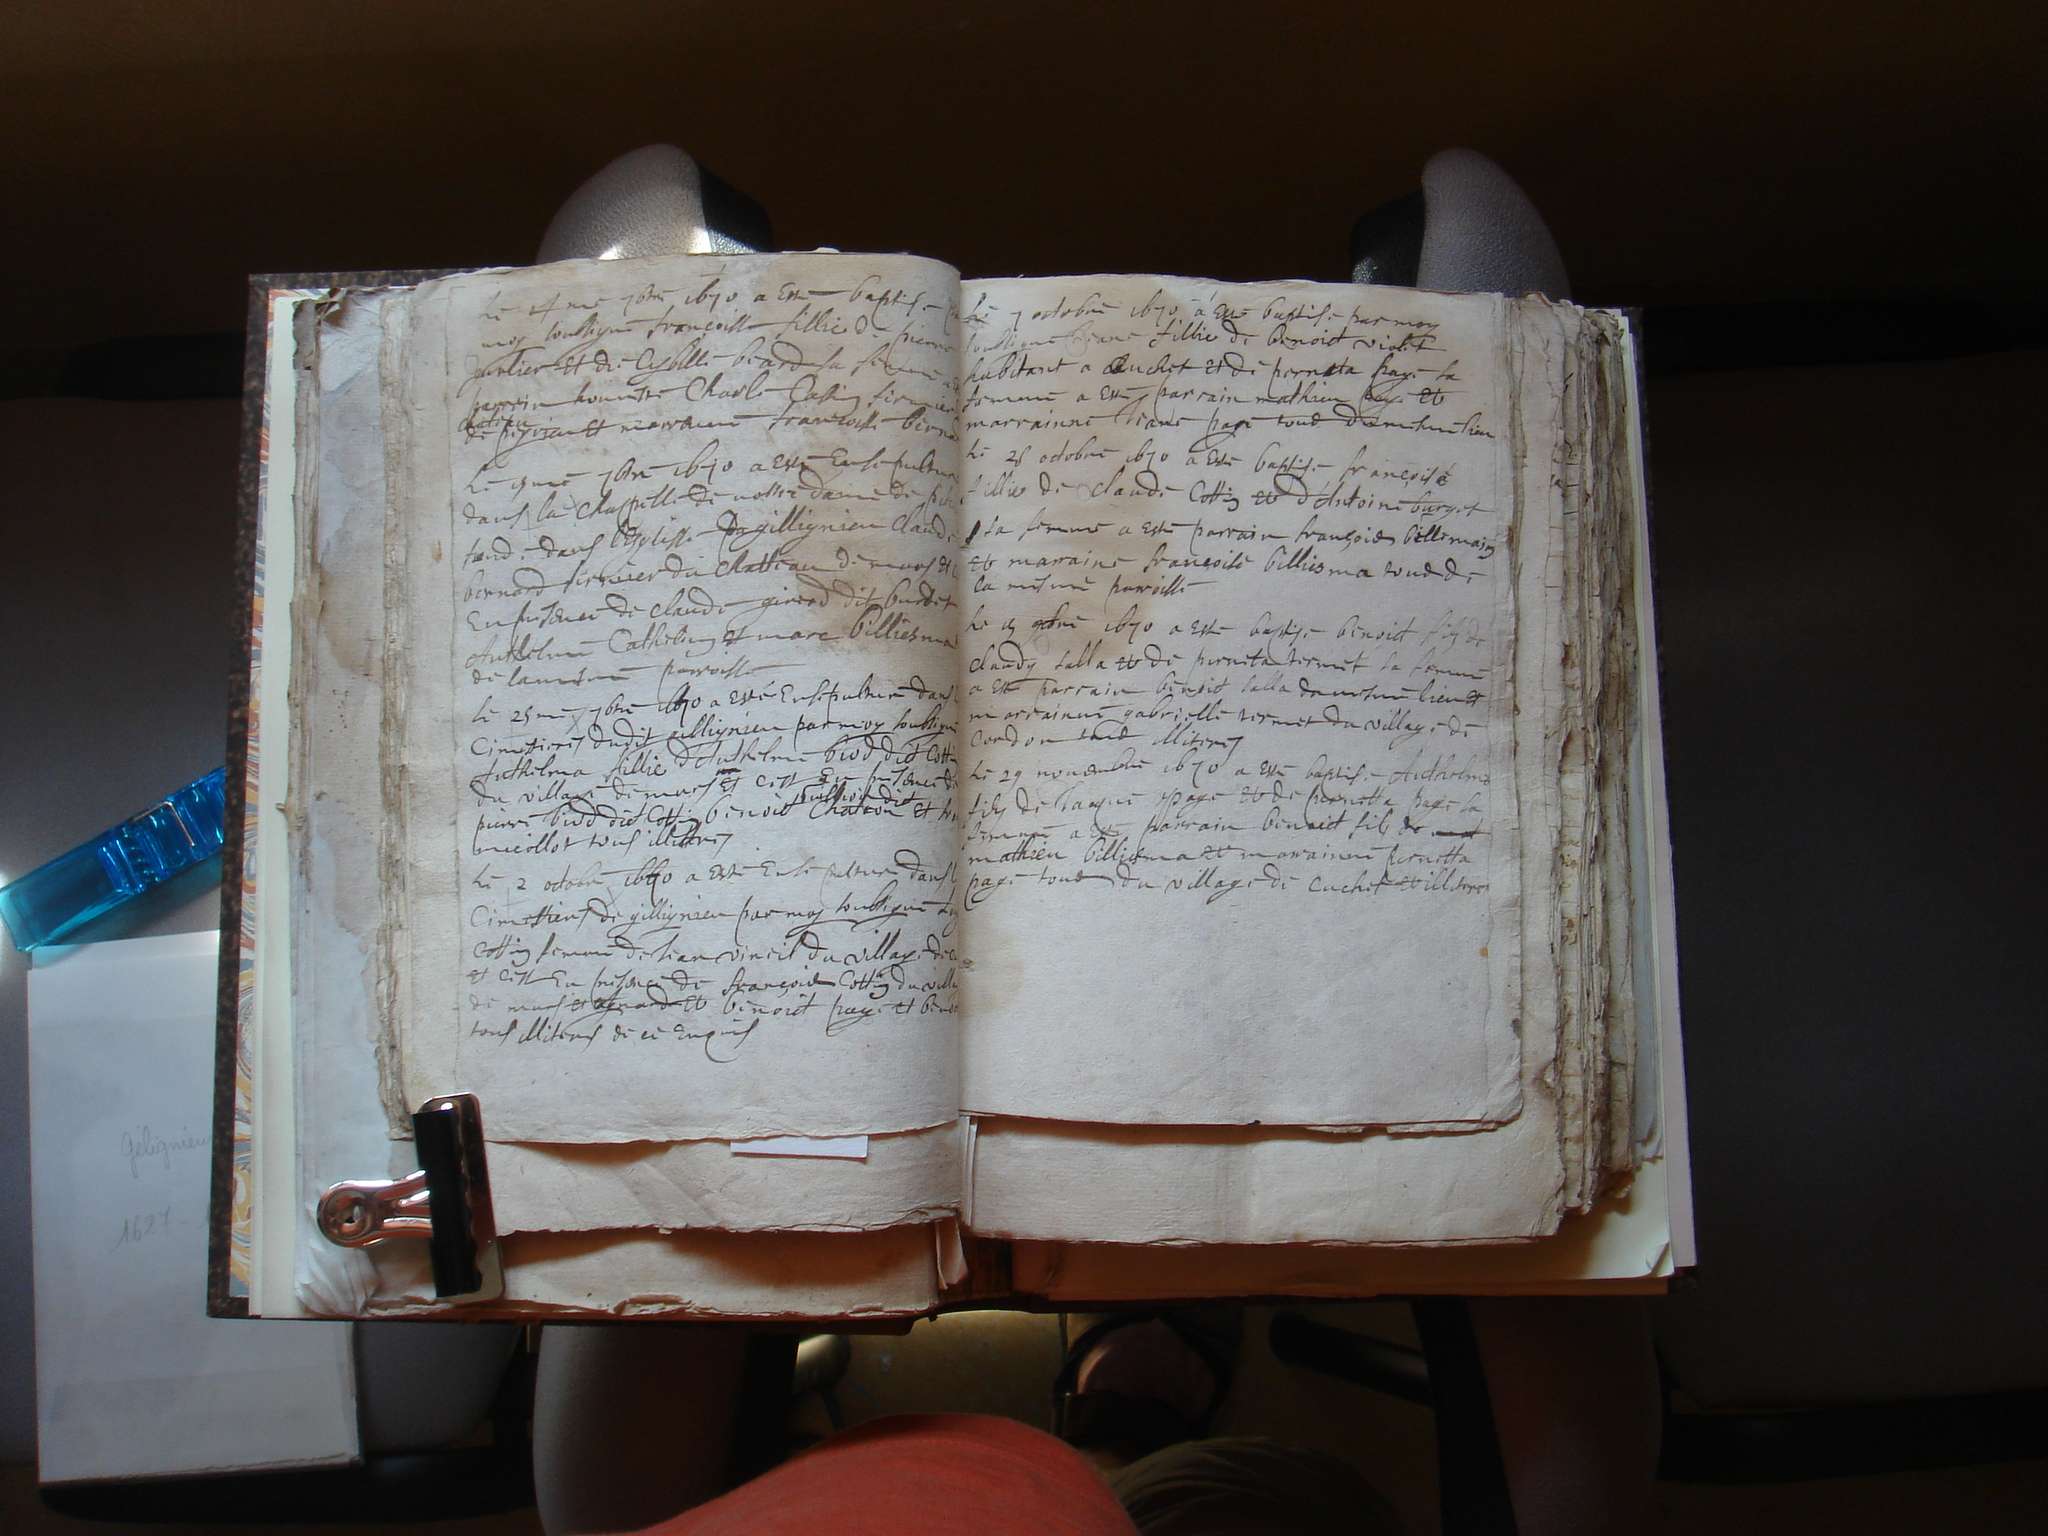 Le 14me 7bre 1670 a Esté baptisé
moy soubsigné françoise fillie de pierre
Juvlier et de Cybille béard sa femme a
parrein honneste Charle Cassin fermier
chateau
de pegrieu et marraine francoise berna
Le 19me 7bre 1670 a Esté Ensepulture
dans la Chappelle de nostre dame de pitié
fonde dans l'Esglisse Gillignieu Claude
bernard fermier du Chatteau de murs et
En presence de claude girerd dit burdet
Anthelme Cathelin et marc billiesma
de la mesme parroisse
Le 25me 7bre 1670 a esté Ensepulture dans l
Cimetieres dudit gillignieu par moy soubsigné
Anthelma fillie d'Anthelme biod dit Cotti
du village de murs Et c'est En presence de
pierre biod dit Cottin benoit Chataon et
micollot tous illitters
Le 2 octobre 1670 a Esté Ensepulture dans l
Cimettiers de gillignieu par moy soubsigné
Cottin femme de Jean vincil du village de
et c'est En presence de françois Cottin du villa
de murs et benoit page et beno
tous illiters de ce Enquis
Le 7 octobre 1670 a Esté baptisé par moy
soubsigne Jeane fillie de Benoict violet
habitant a Cuchet et de perneta page sa
femme a Esté parrain mathieu page et
marrainne Jeane page tous du mesme lieu
Le 28 octobre 1670 a Esté baptise françoise
fillie de Claude Cottin et d'Antoine burget
sa femme a esté parrain françois billiemaz
et marraine françoise billiesma tous de
la mesme parroisse
Le 13 9bre 1670 a esté baptise benoict fils de
claudy salla et de perneta termet sa femme
a Esté parrain benoit salla du mesme lieu et
marrainne gabrielle termet du village de
Cordon tous illiteres
Le 29 novembre 1670 a esté baptise Anthelme
fils de Jaque page et de pernetta page sa
femme a Este parrain benoict fils de
mathieu billiesma et marrainne pernetta
page tous du village de cuchet et illiteres
Gélignieu
1627 -